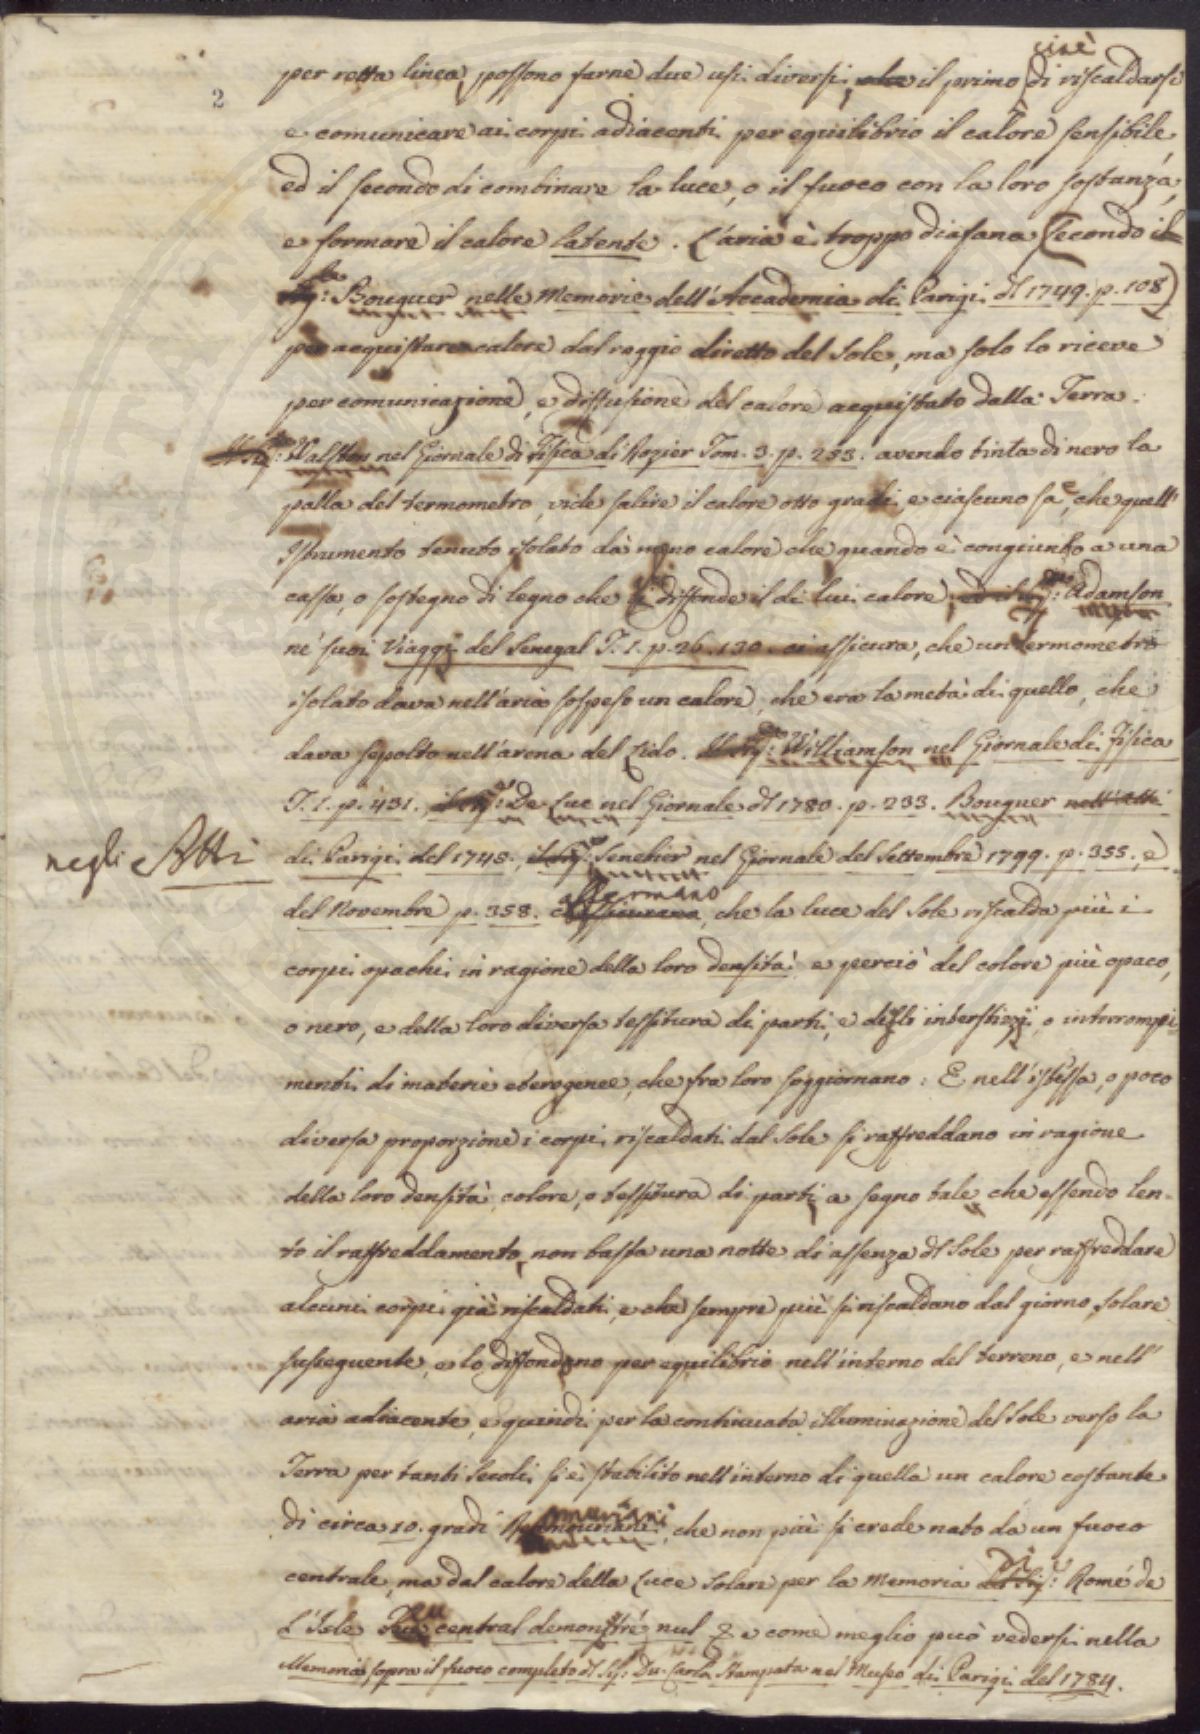 2
cioè
per retta linea, possono farne due usi diversi, il primo di riscaldarsi
e comunicare ai corpi adiacenti per equilibrio il calore sensibile
ed il secondo di combinare la luce, o il fuoco con la loro sostanza,
e formare il calore latente. L'aria è troppo diafana (secondo il
Sig: Bouguer nelle Memorie dell'Accademia di Parigi dl 1749. p. 108)
per acquistare calore dal raggio diretto del Sole, ma solo lo riceve
per comunicazione, e diffusione del calore acquistato dalla Terra.
Il Sig: Walston nel Giornale di Fisica di Rozier Tom. 3. p. 233. avendo tinta di nero la
palla del termometro, vide salire il calore otto gradi, e ciascuno sa, che quell'
Istrumento tenuto isolato dà meno calore che quando è congiunto a una
cassa, o sostegno di legno che diffonde il di lui calore, ed il Sig: Adamson
ne' suoi Viaggi del Senegal T. I. p. 26. 130. ci assicura, che un termometro
isolato dava nell'aria sospeso un calore, che era la metà di quello, che
dava sepolto nell'arena del Lido. Il Sig: Williamson nel Giornale di Fisica
T. I. p. 431. il Sig: De Luc nel Giornale dl 1780. p. 233. Bouguer nell'Atti
negli Atti
di Parigi del 1748., il Sig: Senebier nel Giornale del Settembre 1799. p. 355., e
affermano
del Novembre p. 358. ci assicurano, che la luce del Sole riscalda più i
corpi opachi in ragione della loro densità: e perciò del colore più opaco,
o nero, e della loro diversa tessitura di parti, e degli interstizj, o interrompi-
menti di materie eterogenee, che fra loro soggiornano: E nell'istessa, o poco
diversa proporzione i corpi riscaldati dal Sole si raffreddano in ragione
della loro densità, colore, o tessitura di parti, a segno tale, che essendo len-
to il raffreddamento, non basta una notte di assenza dl Sole per raffreddare
alcuni corpi già riscaldati, e che sempre più si riscaldano dal giorno solare
susseguente, e lo diffondono per equilibrio nell'interno del terreno, e nell'
aria adiacente, e quindi per la continuata illuminazione del Sole verso la
Terra per tanti Secoli si è stabilito nell'interno di quella un calore costante
di circa 10. gradi Reaumuriani, che non più si crede nato da un fuoco
centrale, ma dal calore della Luce Solare per la Memoria di Romé de
L'Isle Feu central demonstré nul & e come meglio può vedersi nella
Memoria sopra il fuoco completo dl Sig: Du-Carla Stampata nel Museo di Parigi del 1784.